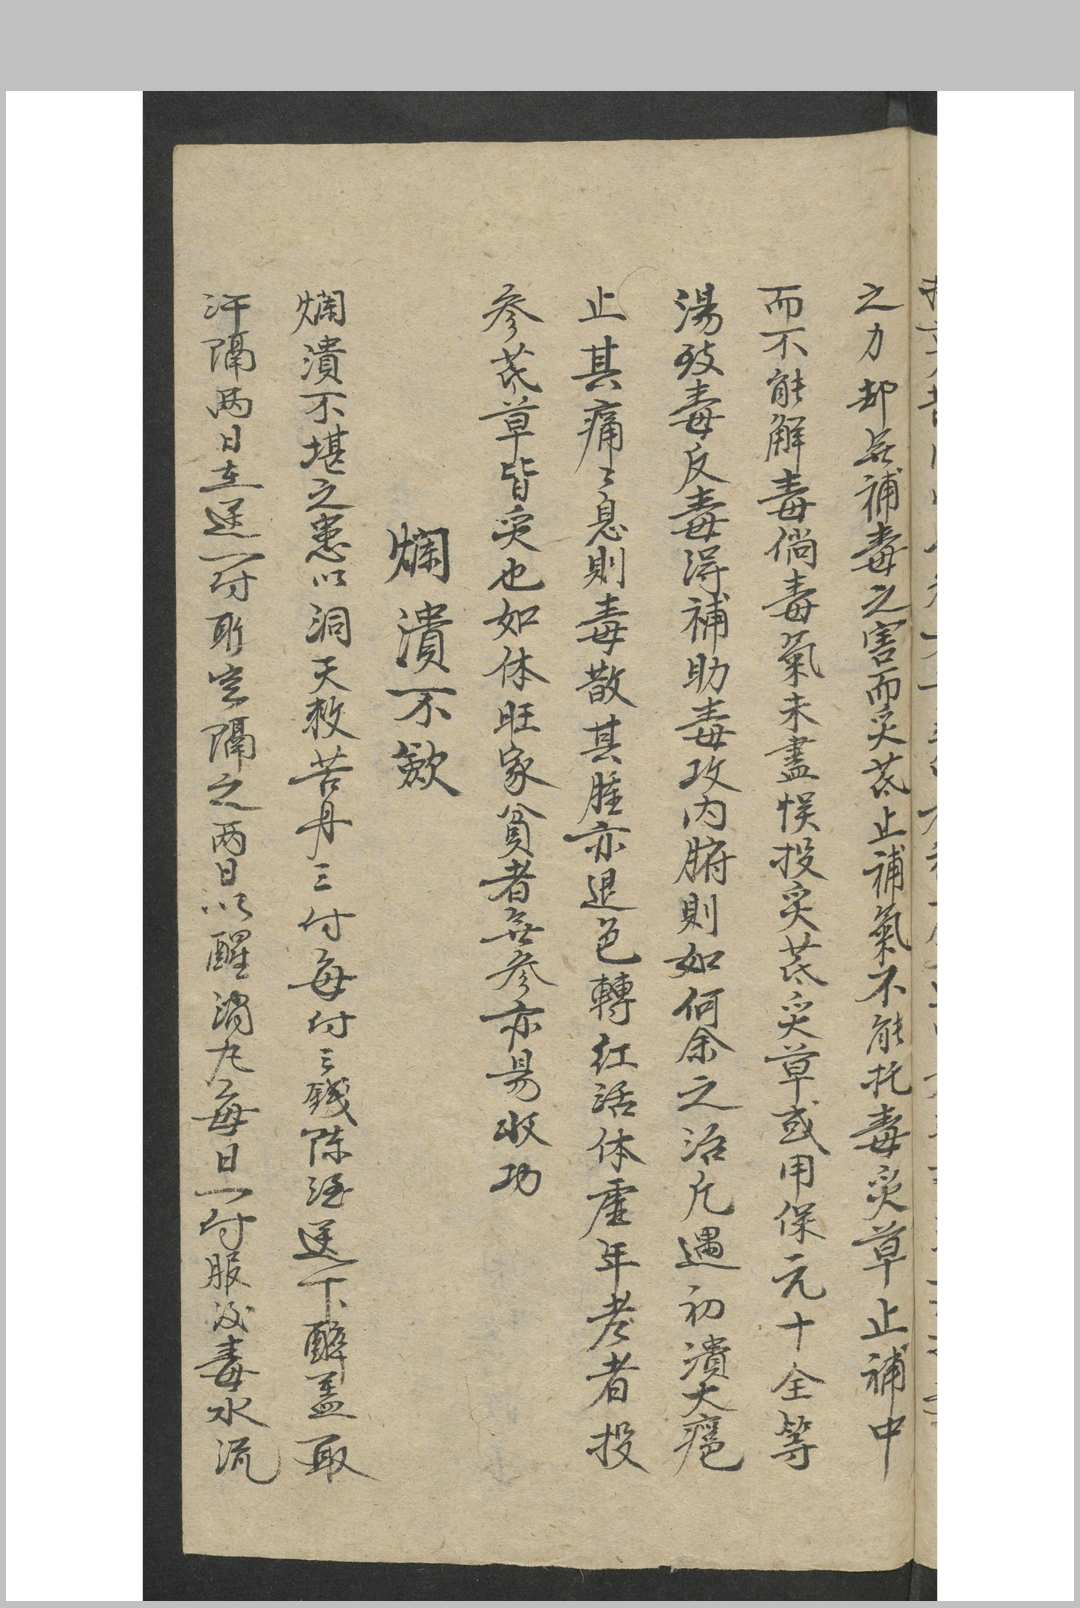 之力却無補毒之害而炙芪止補氣不能托毒炙草止補中
而不能解毒倘毒氣未盡悮投炙芪炙草或用保元十全等
湯致毒反毒得補助毒攻內腑則如何余之治凡遇初潰大癰
止其痛〻息則毒散其腫亦退色轉紅活体虛年老者投
參芪草皆炙也如体旺家貧者無參亦易收功
爛潰不歛
爛潰不堪之患以洞天救苦丹三付每付三錢陈酒送下醉盖取
汗隔两日在送一付取空隔之两日以醒消九每日一付服後毒水流